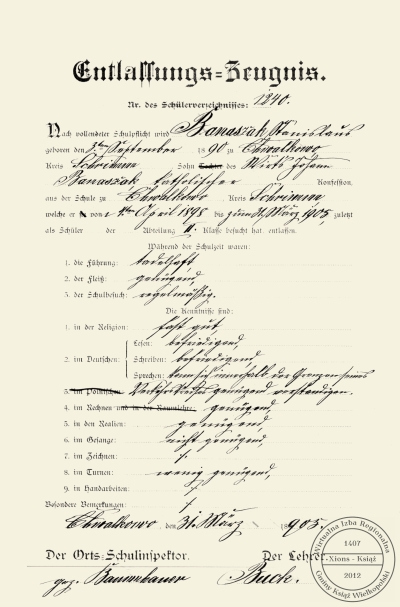 Entlassungs-Zeugnis.
Nr. des Schülerverzeichnisses: 1240.
Nach vollendeter Schulpflicht wird Banaszak, Stanislaus
geboren den 3ten September 1890 in Chwalkowo
Kreis Schrimm Sohn Tochter des Wirts Johann
Banaszak katholischer Konfession,
aus der Schule zu Chwalkowo Kreis Schrimm
welche er von 1ten April 1898 bis zum 31. März 1905, zuletzt
als Schüler der Abteilung II. Klasse besucht hat, entlassen.
Während der Schulzeit waren:
1. die Führung: tadelhaft
2. der Fleiß: genügend,
3. der Schulbesuch: regelmäßig.
Die Kenntnisse sind:
1. in der Religion: fast gut,
Lesen: befriedigend,
2. im Deutschen: Schreiben: befriedigend,
Sprechen: kann sich innerhalb der Grenzen seines
3. im Polnischen: genügend verständigen.
4. im Rechnen und in der Raumlehre: genügend,
5. in den Realien: genügend,
6. im Gesange: nicht genügend,
7. im Zeichnen: /.
8. im Turnen: wenig genügend,
9. in Handarbeiten: /.
Besondere Bemerkungen: /.
Chwalkowo den 31. März 1905.
Der Orts-Schulinspektor. Der Lehrer.
gez. Bannhauer Buck.
Wirtualna Izba Regionalna
1407
Xions - Książ
2012
Gminy Książ Wielkopolski